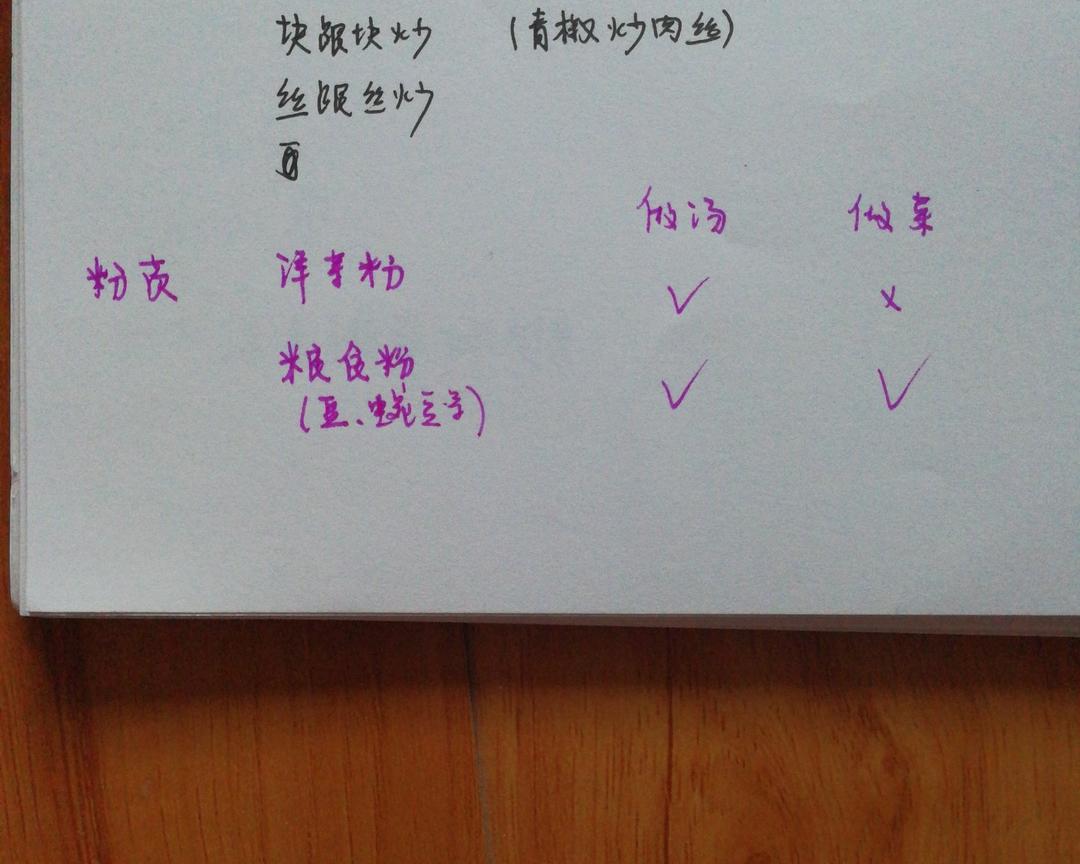 块跟块炒 (青椒炒肉丝)
丝跟丝炒
做汤 做菜
粉芡 洋芋粉 ✓ ×
粮食粉 ✓ ✓
(豆、蜿豆等)